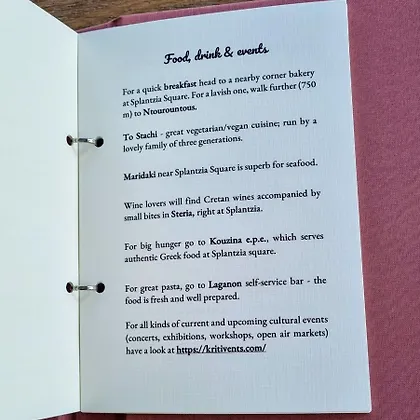 Food, drink & events
For a quick breakfast head to a nearby corner bakery
at Splantzia Square. For a lavish one, walk further (750
m) to Ntourountous.
To Stachi - great vegetarian/vegan cuisine; run by a
lovely family of three generations.
Maridaki near Splantzia Square is superb for seafood.
Wine lovers will find Cretan wines accompanied by
small bites in Steria, right at Splantzia.
For big hunger go to Kouzina e.p.e., which serves
authentic Greek food at Splantzia square.
For great pasta, go to Laganon self-service bar - the
food is fresh and well prepared.
For all kinds of current and upcoming cultural events
(concerts, exhibitions, workshops, open air markets)
have a look at https://kritivents.com/